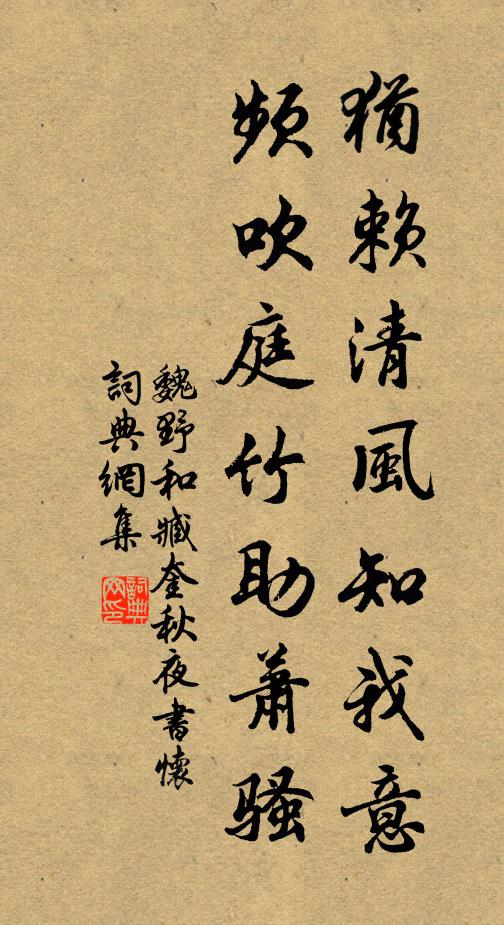 猶賴清風知我意
頻吹庭竹助蕭騷
魏野和臧奎秋夜書懷
詞典網集
詞典網印